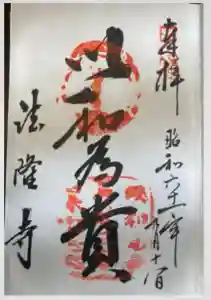 奉拝
昭和六十二年 月十 日
以和為貴
法隆寺